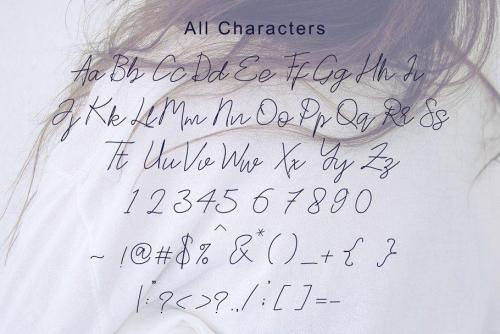 All Characters
Aa Bb Cc Dd Ee Ff Gg Hh Ii
Jj Kk Ll Mm Nn Oo Pp Qq Rr Ss
Tt Uu Vv Ww Xx Yy Zz
1 2 3 4 5 6 7 8 9 0
~ !@#$%^&*()_+{ }
|:"?<>?.,/;'[]=-